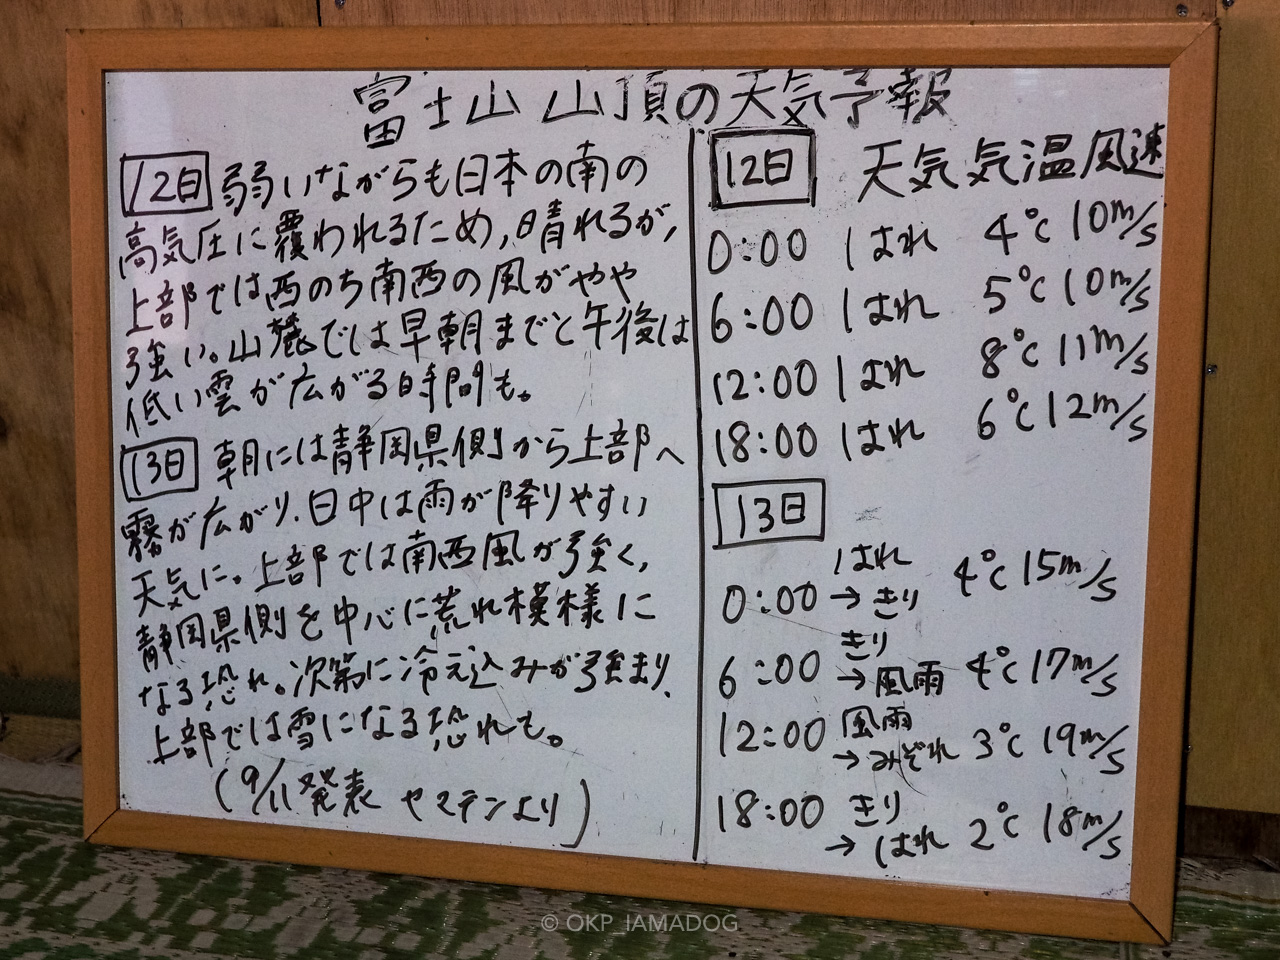 富士山 山頂の天気予報
12日 弱いながらも日本の南の
高気圧に覆われるため,晴れるが,
上部では西のち南西の風がやや
強い。山麓では早朝までと午後は
低い雲が広がる時間も。
13日 朝には静岡県側から上部へ
霧が広がり、日中は雨が降りやすい
天気に。上部では南西風が強く,
静岡県側を中心に荒れ模様に
なる恐れ。次第に冷え込みが強まり、
上部では雪になる恐れも。
(9/11発表 ヤマテンより)
12日 天気 気温 風速
0:00 はれ 4℃ 10m/s
6:00 はれ 5℃ 10m/s
12:00 はれ 8℃ 11m/s
18:00 はれ 6℃ 12m/s
13日
0:00 はれ→きり 4℃ 15m/s
6:00 きり→風雨 4℃ 17m/s
12:00 風雨→みぞれ 3℃ 19m/s
18:00 きり→はれ 2℃ 18m/s
© OKP_IAMADOG